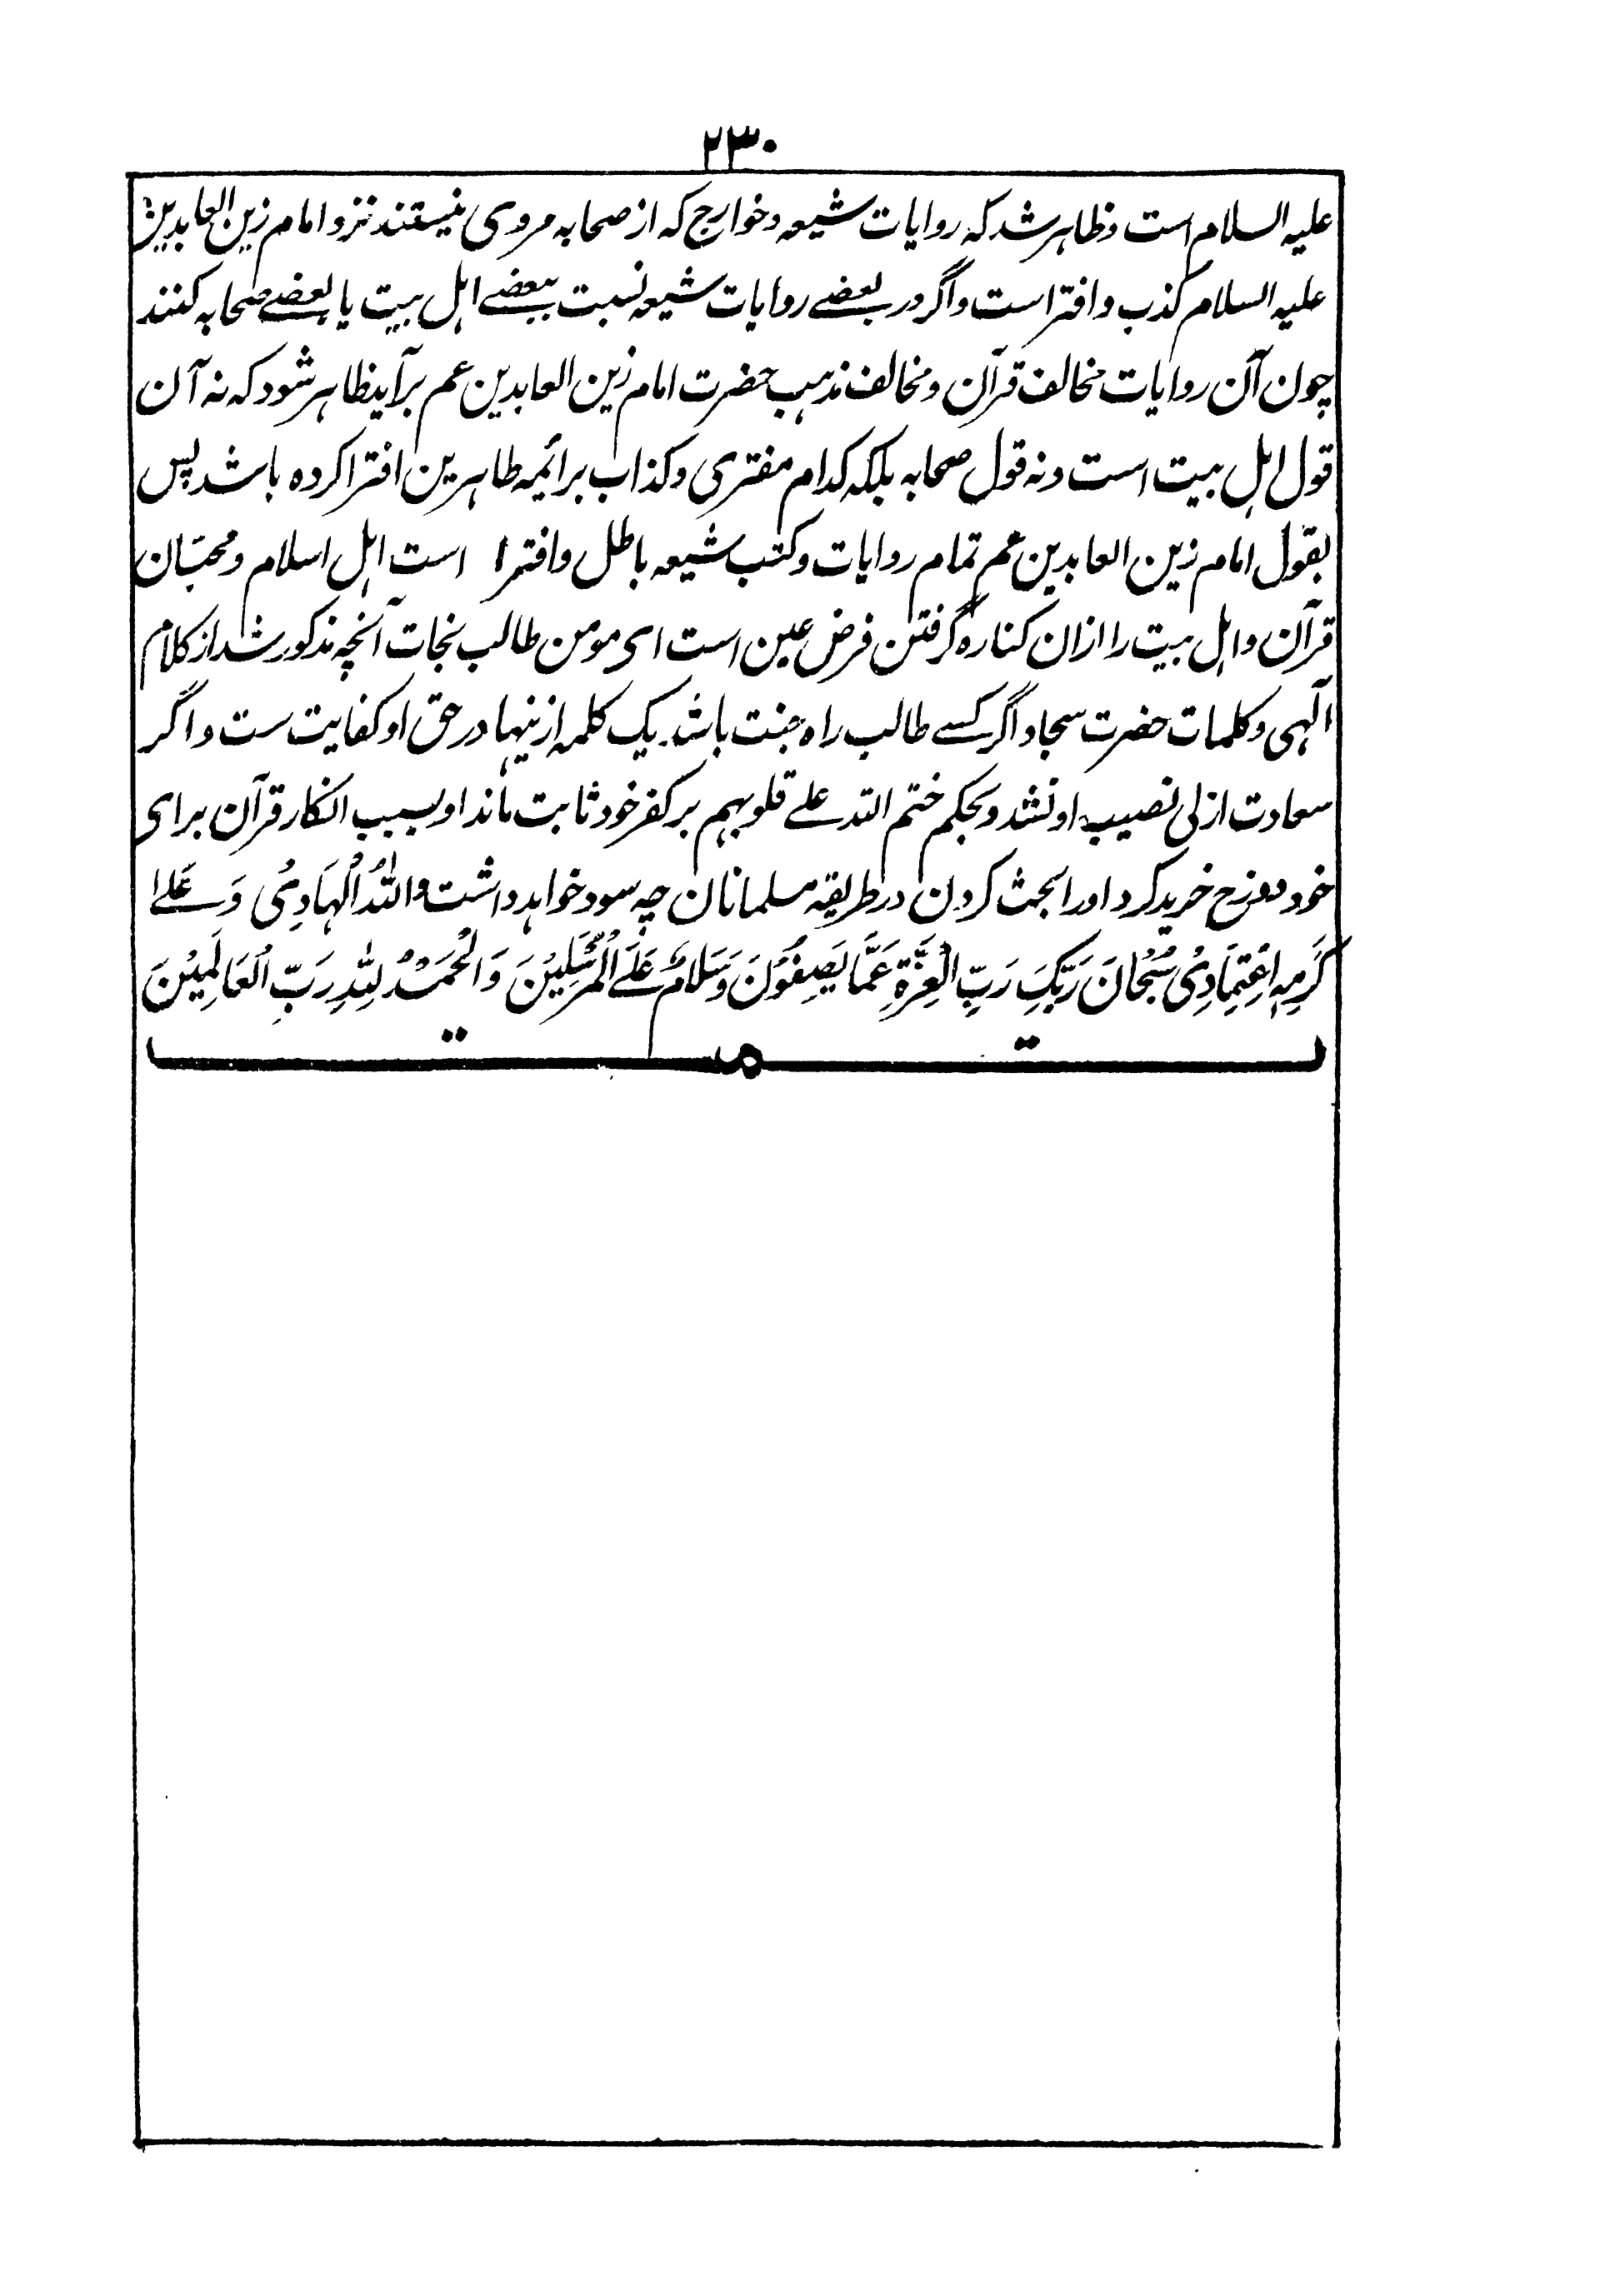 ۲۳۰
علیه السلام است و ظاهر شد که روایات شیعه و خوارج که از صحابه مروی نیستند نزد امام زین العابدین
علیه السلام کذب و افترا ست و اگر در بعضے روایات شیعه نسبت ببعضے اہل بیت یا بعضے صحابه کنند
چون آن روایات مخالف قرآن و مخالف مذہب حضرت امام زین العابدین عم برآید ظاہر شود که نه آن
قول اہل بیت است و نه قول صحابه بلکه کدام مفتری و کذاب بر ائمه طاہرین افترا کرده باشد پس
بقول امام زین العابدین عم تمام روایات و کتب شیعه باطل و افترا است اہل اسلام و محبّان
قرآن و اہل بیت را ازان کناره گرفتن فرض عین است ای مومن طالب نجات آنچه مذکور شد از کلام
آلہی و کلمات حضرت سجاد اگر کسے طالب راه جنت باشد یک کلمه ازینہا در حق او کفایت ست و اگر
سعادت ازلی نصیب او نشد و بحکم ختم اللہ علے قلوبہم بر کفر خود ثابت ماند او بسبب انکار قرآن برای
خود دوزخ خرید کرد او را بحث کردن در طریقه مسلمانان چه سود خواهد داشت وَاللّٰهُ الْہَادِیْ وَ عَلٰے
کَرَمِهِ اِعْتِمَادِیْ سُبْحَانَ رَبِّکَ رَبِّ الْعِزَّةِ عَمَّا یَصِفُوْنَ وَسَلَامٌ عَلَے الْمُرْسَلِیْنَ وَ الْحَمْدُ لِلّٰهِ رَبِّ الْعَالَمِیْنَ
تمت